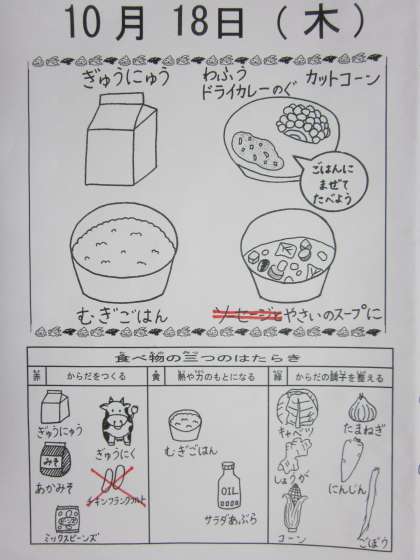 10月 18日（木）
ぎゅうにゅう
わふう
ドライカレーのぐ
カットコーン
ごはんに
まぜて
たべよう
むぎごはん
ソーセージとやさいのスープに
食べ物の三つのはたらき
赤 からだをつくる
黄 熱や力のもとになる
緑 からだの調子を整える
ぎゅうにゅう
ぎゅうにく
みそ
あかみそ
チキンフランクフルト
ミックスビーンズ
むぎごはん
OIL
サラダあぶら
キャベツ
たまねぎ
しょうが
にんじん
コーン
ごぼう